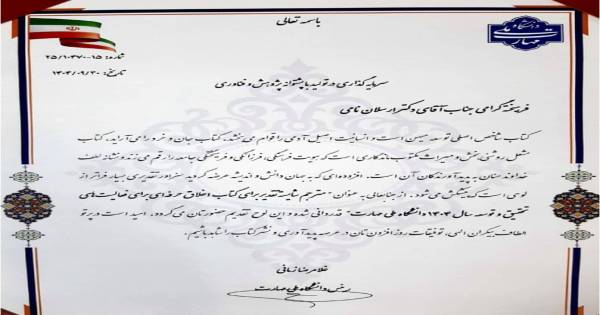 باسمه تعالی
دانشگاه ملی مهارت
شماره: ۲۵/۱۰۴۷۰-۱۵
تاریخ: ۱۴۰۴/۰۹/۳۰
سرمایه گذاری در تولید با پشتوانه پژوهش و فناوری
فرهیخته گرامی جناب آقای دکتر ارسلان نامی
کتاب شاخص اصلی توسعه میهن است و انسانیت اصیل آدمی را قوام می بخشد، کتاب جان و خرد را می آراید، کتاب
مشعل روشنی بخش و میراث مکتوب ماندگاری است که هویت فرهنگی، فرزانگی و فرهیختگی جامعه را رقم می زند و نشانه لطف
خداوند منان به پدیدآورندگان آن است. افرادی که به جهان دانش و اندیشه عرضه کردید سزاوار تقدیری بسیار فراتر از
لوحی است که پیشکش می شود. از جنابعالی به عنوان "مترجم شایسته تقدیر برای کتاب اخلاق حرفه ای برای فعالیت های
تحقیق و توسعه سال ۱۴۰۴ دانشگاه ملی مهارت" قدردانی شده و این لوح تقدیم حضورتان می گردد. امید است در پرتو
الطاف بیکران الهی، توفیقات روزافزون تان در عرصه پدیدآوری و نشر کتاب را شاهد باشیم.
غلامرضا زمانی
رئیس دانشگاه ملی مهارت